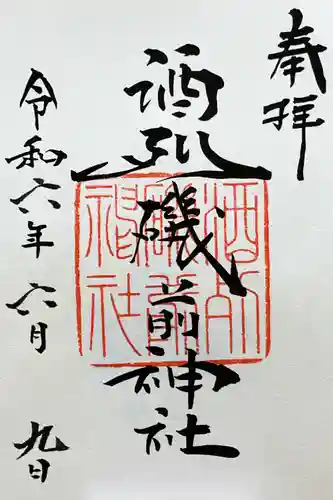 奉拝
酒列磯前神社
酒列磯前神社
令和六年六月九日